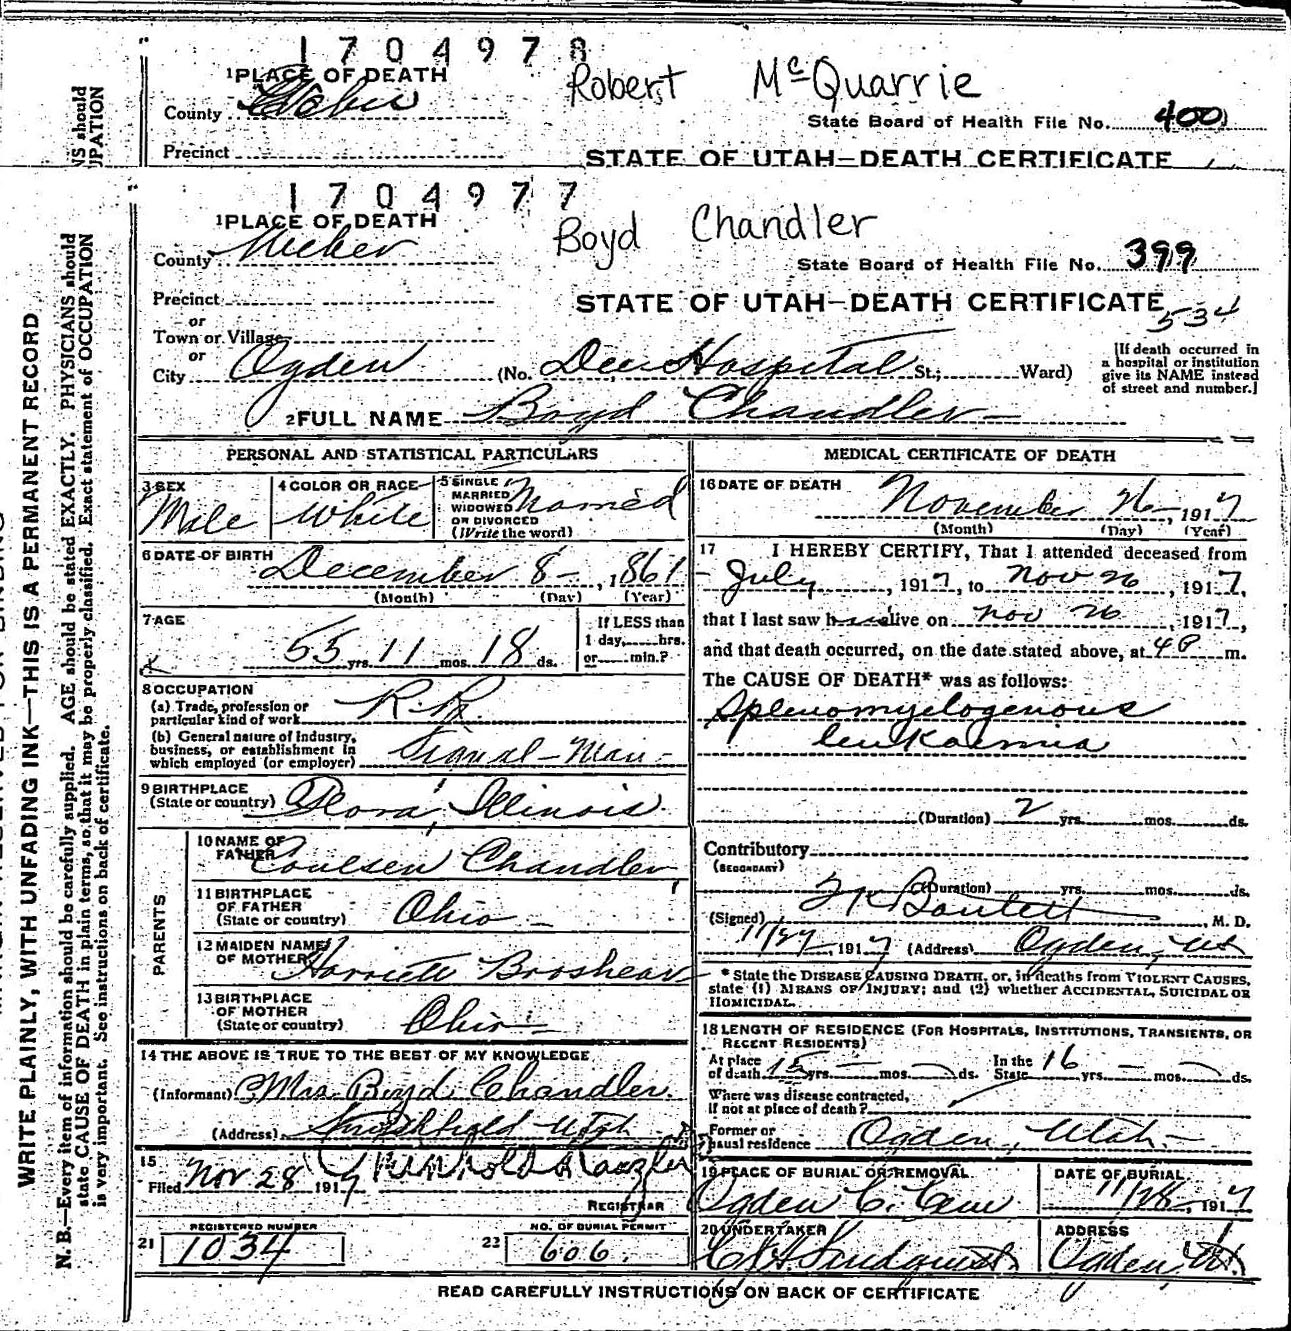 1704978
1 PLACE OF DEATH
Robert McQuarrie
County Weber
State Board of Health File No. 400
Precinct
STATE OF UTAH—DEATH CERTIFICATE
NS should
UPATION
1704977
1 PLACE OF DEATH
Boyd Chandler
County Weber
State Board of Health File No. 399
Precinct
STATE OF UTAH—DEATH CERTIFICATE
534
or
Town or Village
or
City Ogden (No. Dee Hospital St.; Ward)
[If death occurred in
a hospital or institution
give its NAME instead
of street and number.]
2 FULL NAME Boyd Chandler
PERSONAL AND STATISTICAL PARTICULARS
3 SEX Male
4 COLOR OR RACE White
5 SINGLE
MARRIED
WIDOWED
OR DIVORCED
(Write the word) Married
6 DATE OF BIRTH
December 8 - , 1861
(Month) (Day) (Year)
7 AGE
55 yrs. 11 mos. 18 ds.
If LESS than
1 day, hrs.
or min.?
8 OCCUPATION
(a) Trade, profession or
particular kind of work R.R.
(b) General nature of industry,
business, or establishment in
which employed (or employer) Signal-Man
9 BIRTHPLACE
(State or country) Flora, Illinois
PARENTS
10 NAME OF
FATHER Coulsen Chandler
11 BIRTHPLACE
OF FATHER
(State or country) Ohio
12 MAIDEN NAME
OF MOTHER Harriett Broshears
13 BIRTHPLACE
OF MOTHER
(State or country) Ohio
14 THE ABOVE IS TRUE TO THE BEST OF MY KNOWLEDGE
(Informant) Mrs. Boyd Chandler
(Address) Smithfield Utah
15
Filed Nov 28 1917
REGISTRAR
REGISTERED NUMBER
21 1034
NO. OF BURIAL PERMIT
22 606
MEDICAL CERTIFICATE OF DEATH
16 DATE OF DEATH
November 26 - , 1917
(Month) (Day) (Year)
17 I HEREBY CERTIFY, That I attended deceased from
July , 1917, to Nov 26 , 1917,
that I last saw h alive on Nov 26 , 1917,
and that death occurred, on the date stated above, at 4 P m.
The CAUSE OF DEATH* was as follows:
Splenomyelogenous
leukaemia
(Duration) 2 yrs. mos. ds.
Contributory
(SECONDARY)
(Duration) yrs. mos. ds.
(Signed) Bartlett M. D.
11/27, 1917 (Address) Ogden, Ut
* State the DISEASE CAUSING DEATH, or, in deaths from VIOLENT CAUSES,
state (1) MEANS OF INJURY; and (2) whether ACCIDENTAL, SUICIDAL OR
HOMICIDAL.
18 LENGTH OF RESIDENCE (FOR HOSPITALS, INSTITUTIONS, TRANSIENTS, OR
RECENT RESIDENTS)
At place
of death 15 yrs. mos. ds. In the
State 16 yrs. mos. ds.
Where was disease contracted,
if not at place of death?
Former or
usual residence Ogden, Utah.
19 PLACE OF BURIAL OR REMOVAL
Ogden C. Cem
DATE OF BURIAL
11/28, 1917
20 UNDERTAKER
Lindquist
ADDRESS
Ogden, Ut.
READ CAREFULLY INSTRUCTIONS ON BACK OF CERTIFICATE
WRITE PLAINLY, WITH UNFADING INK—THIS IS A PERMANENT RECORD
N. B.—Every item of information should be carefully supplied. AGE should be stated EXACTLY. PHYSICIANS should
state CAUSE OF DEATH in plain terms, so that it may be properly classified. Exact statement of OCCUPATION
is very important. See instructions on back of certificate.